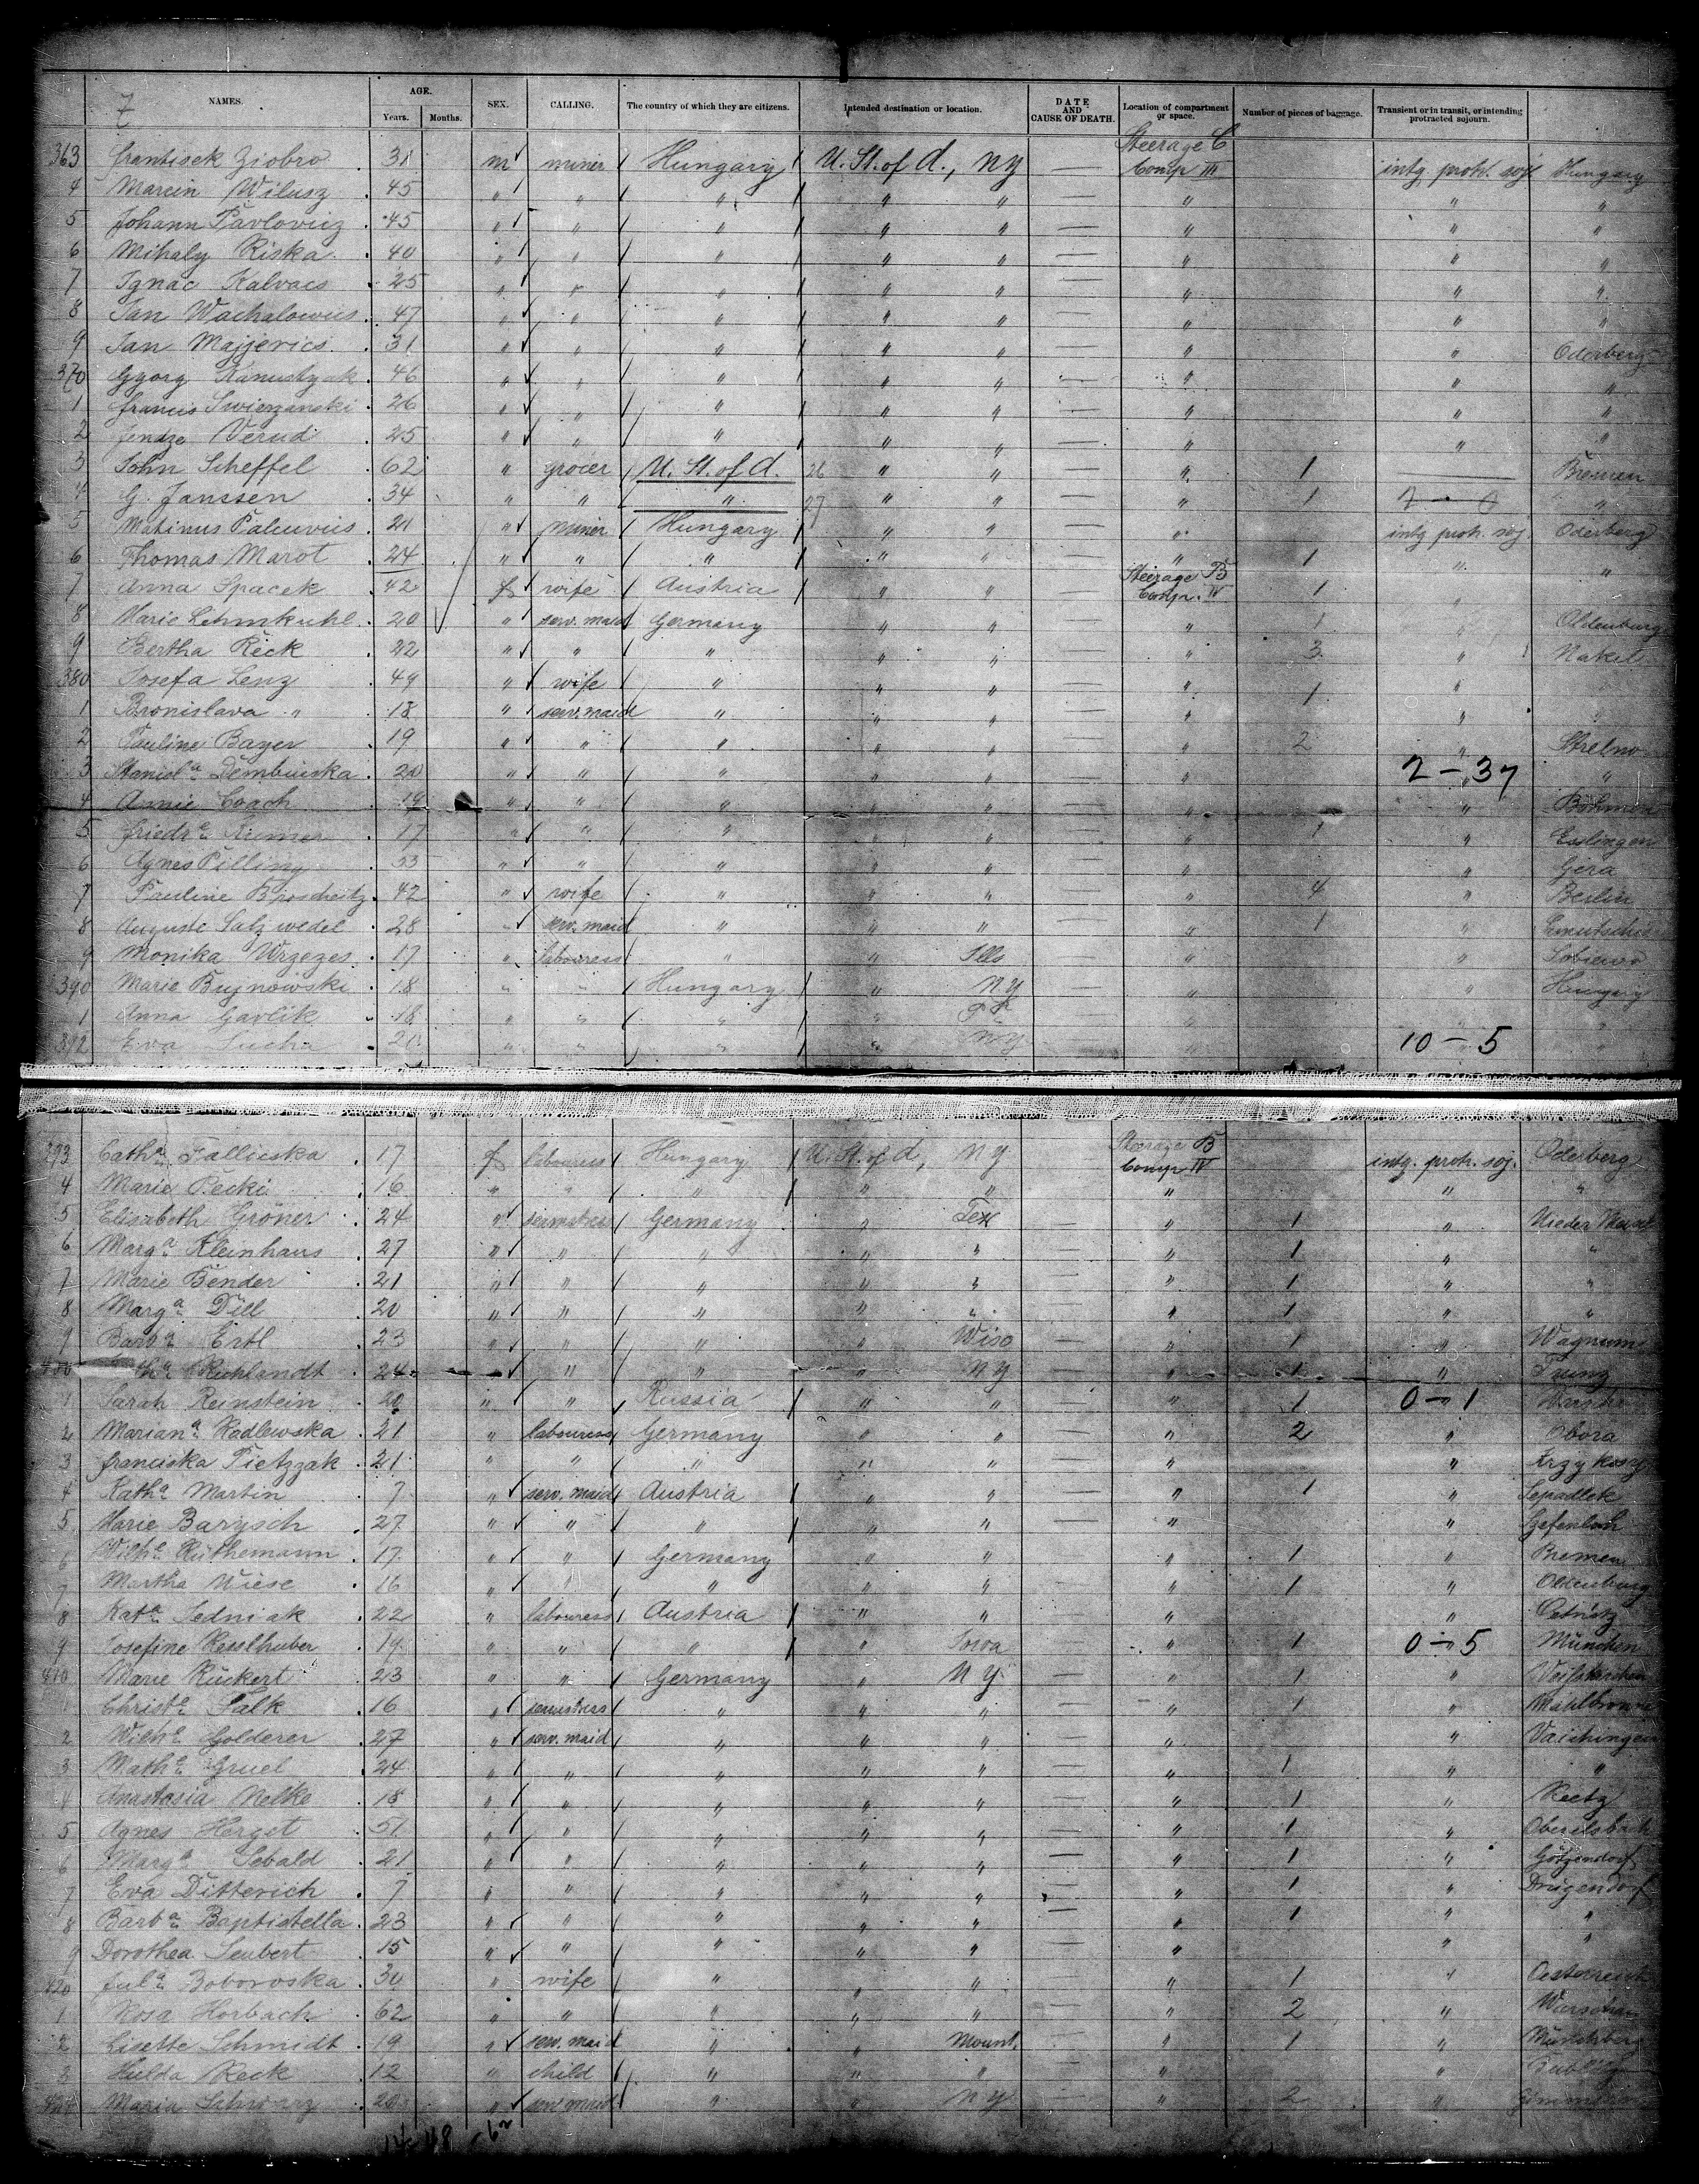 7
NAMES. AGE. Years. Months. SEX. CALLING. The country of which they are citizens. Intended destination or location. DATE AND CAUSE OF DEATH. Location of compartment or space. Number of pieces of baggage. Transient or in transit, or intending protracted sojourn.
363 Frantisek Ziobro 31 m miner Hungary U. St. of A., NY — Steerage C Comp III intg. protr. soj Hungary
4 Marcin Wilusz 45 " " " " " — " " "
5 Johann Pavlovicz 45 " " " " " — " " "
6 Mihaly Riska 40 " " " " " — " " "
7 Ignac Kalvacs 25 " " " " " — " " "
8 Jan Wachalowics 47 " " " " " — " " "
9 Jan Majjerics 31 " " " " " — " " Oderberg
370 Gyorg 46 " " " " " — " " "
1 Francis Swierzanski 26 " " " " " — " " "
2 Jendze Verud 25 " " " " " — " " "
3 John Scheffel 62 " grocer U. St. of A. 26 " " — " 1 — Bremen
4 G. Janssen 34 " " " 27 " " — " 1 "
5 Matinus 21 " miner Hungary " " — " intg protr. soj. Oderberg
6 Thomas Marot 24 " " " " " — " 1 " "
7 Anna Spacek 42 f wife Austria " " — Steerage B Comp. IV 1 "
8 Marie Lehmkuhl 20 " serv. maid Germany " " — " 1 " Oldenburg
9 Bertha Reck 22 " " " " " — " 3 " Nakel
380 Josefa Lenz 49 " wife " " " — " 1 " "
1 Bronislava " 18 " serv. maid " " " — " " "
2 Pauline Bayer 19 " " " " " — " 2 " Strelno
3 Stanisl.a Dembinska 20 " " " " " — " 2 – 37 "
4 Annie Coach 19 " " " " " — " "
5 Friedr.e 17 " " " " " — " 1 " Esslingen
6 Agnes Pilling " " " " " — " " Gera
7 Pauline 42 " wife " " " — " 4 " Berlin
8 Auguste Salzwedel 28 " serv. maid " " " — " 1 "
9 Monika Wrzezes 17 " labouress " " Ills — " "
390 Marie Bujnowski 18 " " Hungary " N.Y — " " Hungary
1 Anna Gavlik 18 " " " " — " "
392 Eva Sucha 20 " " " " — " 10 – 5 "
393 Cath.a 17 f labouress Hungary U. St. of A, NY — Steerage B Comp IV intg. protr. soj. Oderberg
4 Marie Pecki 16 " " " " " — " " "
5 Elisabeth Gröner 24 " Germany " Tex — " 1 "
6 Marg.a Kleinhans 27 " " " " " — " 1 " "
7 Marie Bender 21 " " " " " — " 1 " "
8 Marg.a Dill 20 " " " " " — " 1 " "
9 Barb.a Ertl 23 " " " " Wisc — " 1 "
400 Ruhlandt 24 " " " " NY — " 1 "
1 Sarah Reinstein 20 " " Russia " " — " 1 0 – 1
2 Marian.a Radlewska 21 " labouress Germany " " — " 2 " Obora
3 Franciska Pietzzak 21 " " " " " — " "
4 Kath.a Martin 7 " serv. maid Austria " " — " 1 "
5 Marie Barysch 27 " " " " " — " "
6 Wilh.e Rüthemann 17 " " Germany " " — " 1 " Bremen
7 Martha Wiese 16 " " " " " — " 1 " Oldenburg
8 Kat.a Sedniak 22 " labouress Austria " " — " "
9 Josefine Resslhuber 19 " " " " Iowa — " 1 0 – 5 München
410 Marie Rückert 23 " " Germany " NY — " 1 "
1 Christ.e Falk 16 " seamstress " " " — " 1 "
2 Wilh.e Golderer 27 " serv. maid " " " — " " Vaihingen
3 Math.e Gruel 24 " " " " " — " 1 " "
4 Anastasia Nelke 18 " " " " " — " 1 " Reetz
5 Agnes Herget 51 " " " " " — " 1 " Oberelsbach
6 Marg.a Sebald 21 " " " " " — " 1 " Götzendorf
7 Eva Ditterich 7 " " " " " — " 1 " Drügendorf
8 Barb.a Baptistella 23 " " " " " — " 1 " "
9 Dorothea Seubert 15 " " " " " — " " "
420 Jul.a Boborovska 30 " wife " " " — " 1 " Oesterreich
1 Rosa Horbach 62 " " " " " — " 2 " Warschau
2 Lisette Schmidt 19 " serv. maid " " Mount. — " 1 "
3 Hulda Reck 12 " child " " " — " "
424 Maria Schwarz 20 " serv maid " " NY — " 2 "
14 48 62